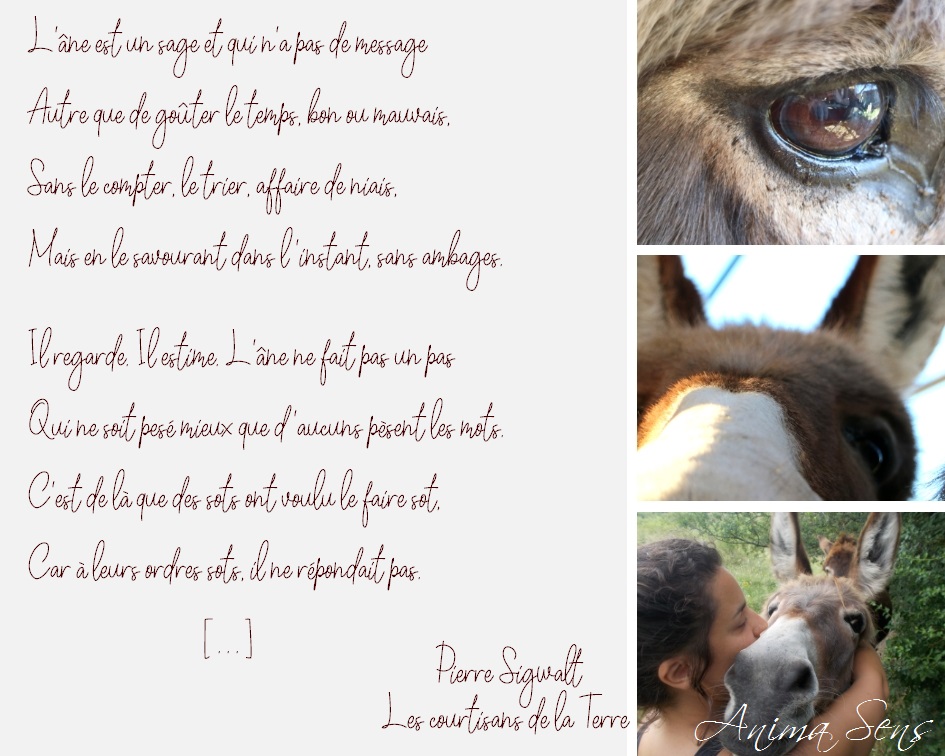 L'âne est un sage et qui n'a pas de message
Autre que de goûter le temps, bon ou mauvais,
Sans le compter, le trier, affaire de niais,
Mais en le savourant dans l'instant, sans ambages.
Il regarde. Il estime. L'âne ne fait pas un pas
Qui ne soit pesé mieux que d'aucuns pèsent les mots.
C'est de là que des sots ont voulu le faire sot,
Car à leurs ordres sots, il ne répondait pas.
[...]
Pierre Sigwalt
Les courtisans de la Terre
Anima Sens